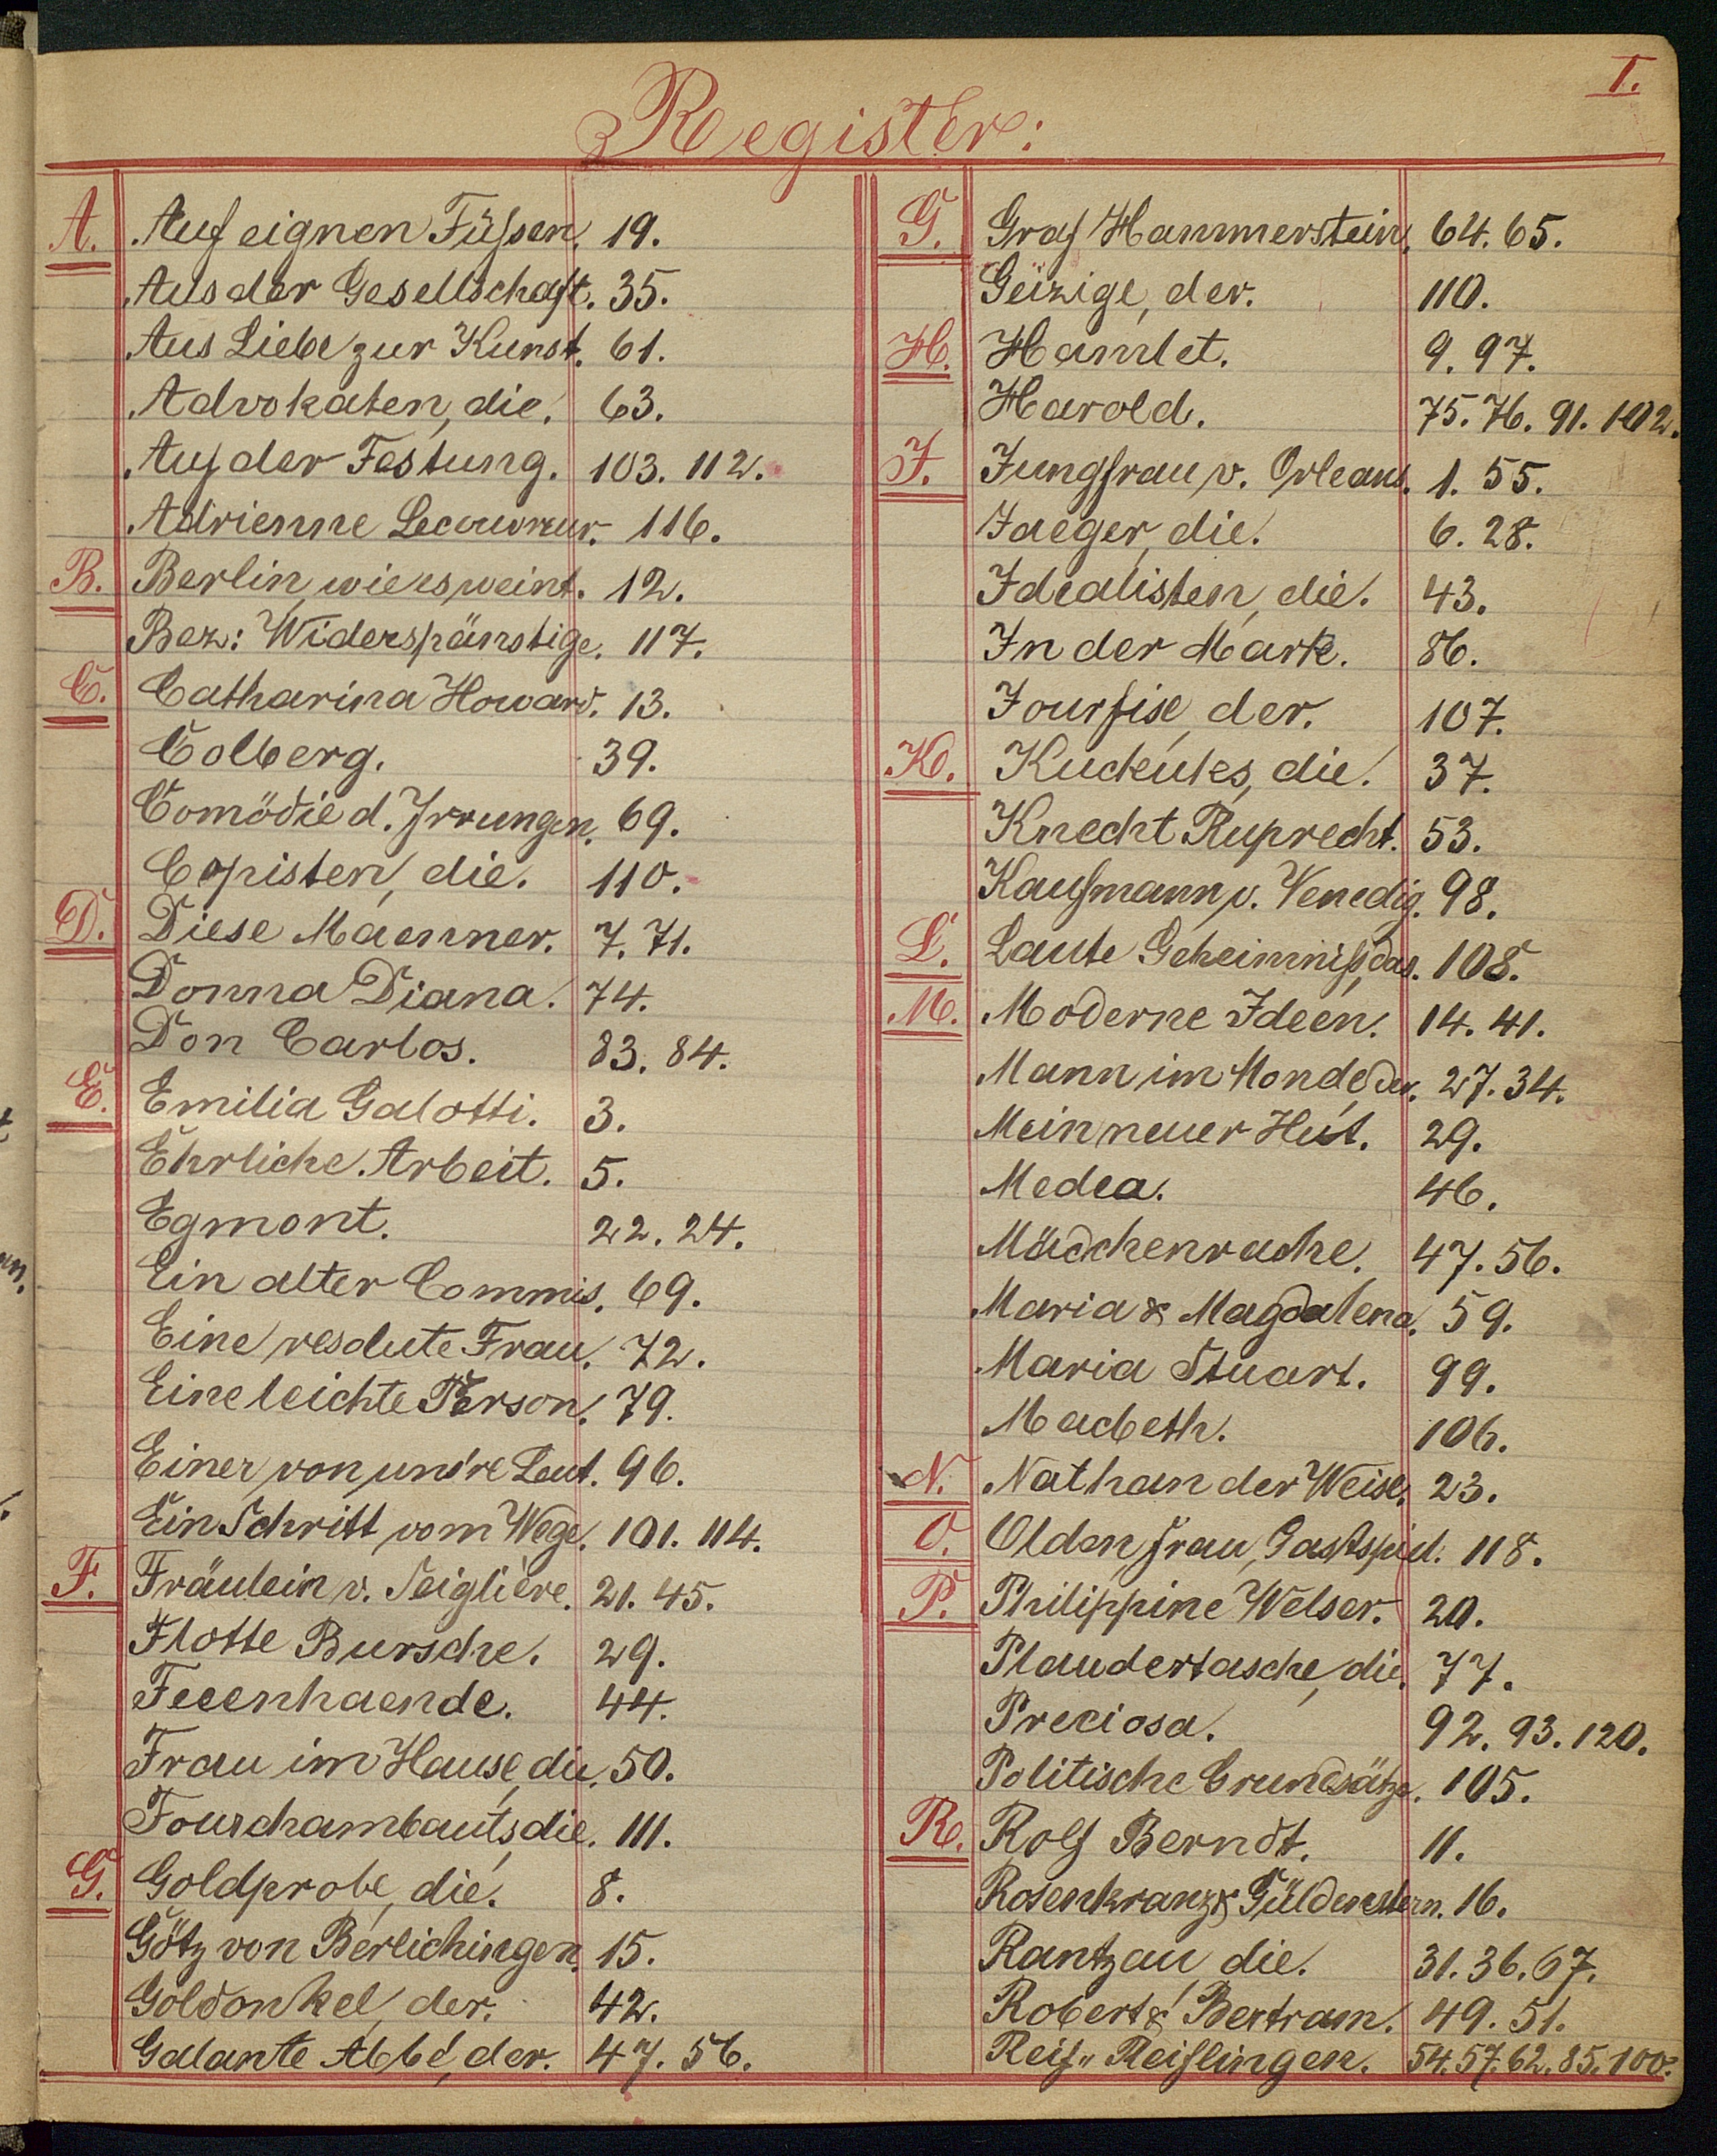 I.
Register:
A. Auf eignen Füßen. 19.
Aus der Gesellschaft. 35.
Aus Liebe zur Kunst. 61.
Advokaten, die. 63.
Auf der Festung. 103. 112.
Adrienne Lecouvreur. 116.
B. Berlin, wie es weint. 12.
Bez: Widerspänstige. 117.
C. Catharina Howard. 13.
Colberg. 39.
Comödie d. Irrungen. 69.
Copisten, die. 110.
D. Diese Maenner. 7. 71.
Donna Diana. 74.
Don Carlos. 83. 84.
E. Emilia Galotti. 3.
Ehrliche Arbeit. 5.
Egmont. 22. 24.
Ein alter Commis. 69.
Eine resolute Frau. 72.
Eine leichte Person. 79.
Einer von uns're Leut. 96.
Ein Schritt vom Wege. 101. 114.
F. Fräulein v. Seiglière. 21. 45.
Flotte Bursche. 29.
Feeenhaende. 44.
Frau im Hause, die. 50.
Fourchambauts, die. 111.
G. Goldprobe, die. 8.
Götz von Berlichingen. 15.
Goldonkel, der. 42.
Galante Abbé, der. 47. 56.
G. Graf Hammerstein. 64. 65.
Geizige, der. 110.
H. Hamlet. 9. 97.
Harold. 75. 76. 91. 102.
J. Jungfrau v. Orleans. 1. 55.
Jaeger, die. 6. 28.
Idealisten, die. 43.
In der Mark. 86.
Jourfise, der. 107.
K. Kuckuks, die. 37.
Knecht Ruprecht. 53.
Kaufmann v. Venedig. 98.
L. Laute Geheimniß, das. 108.
M. Moderne Ideen. 14. 41.
Mann im Monde, der. 27. 34.
Mein neuer Hut. 29.
Medea. 46.
Mädchenrache. 47. 56.
Maria & Magdalena. 59.
Maria Stuart. 99.
Macbeth. 106.
N. Nathan der Weise. 23.
O. Olden, Frau, Gastspiel. 118.
P. Philippine Welser. 20.
Plaudertasche, die. 77.
Preciosa. 92. 93. 120.
Politische Grundsätze. 105.
R. Rolf Berndt. 11.
Rosenkranz & Güldenstern. 16.
Rantzau, die. 31. 36. 67.
Robert & Bertram. 49. 51.
Reif" Reiflingen. 54. 57. 62. 85. 100.